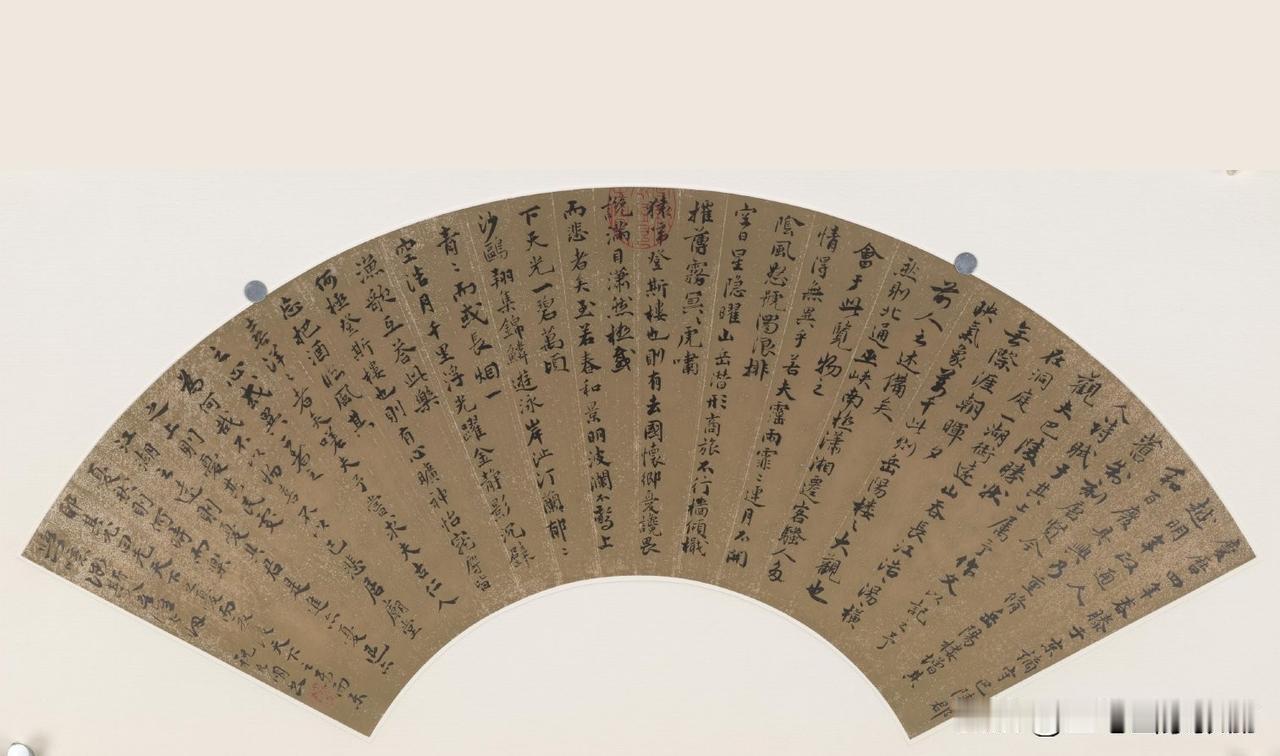 慶曆四年春滕子京謫守巴陵郡
越明年政通人
和百廢具興乃重脩岳陽樓增其
舊制
人詩賦于其上属予作文以記之予
觀夫巴陵勝狀
在洞庭一湖銜遠山吞長江浩湯〻橫
無際涯朝暉夕
映氣象萬千此則岳陽樓之大觀也
前人之述備矣
然則北通巫峽南極瀟湘遷客騷人多
會于此覽物之
情得無異乎若夫霪雨霏〻連月不開
陰風怒號濁浪排
空日星隐曜山岳潜形商旅不行檣傾檝
摧薄霧冥〻虎嘯
猿啼登斯樓也則有去國懷鄉憂讒畏
譏滿目瀟然極感
而悲者矣至若春和景明波瀾不驚上
下天光一碧萬頃
沙鷗翔集錦鱗遊泳岸芷汀蘭郁〻
青〻而或長烟一
空皓月千里浮光躍金靜影沉璧
漁歌互答此樂
何極登斯樓也則有心曠神怡寵辱皆
忘把酒临風其
喜洋〻者矣嗟夫予嘗求夫古仁人
之心或異二者之
為何哉不以物喜不以己悲居廟堂
之上則憂其民處
江湖之遠則憂其君是進亦憂退亦
憂然則何時而樂
耶其必曰先天下之憂而憂後天下之樂而樂
祝允明書